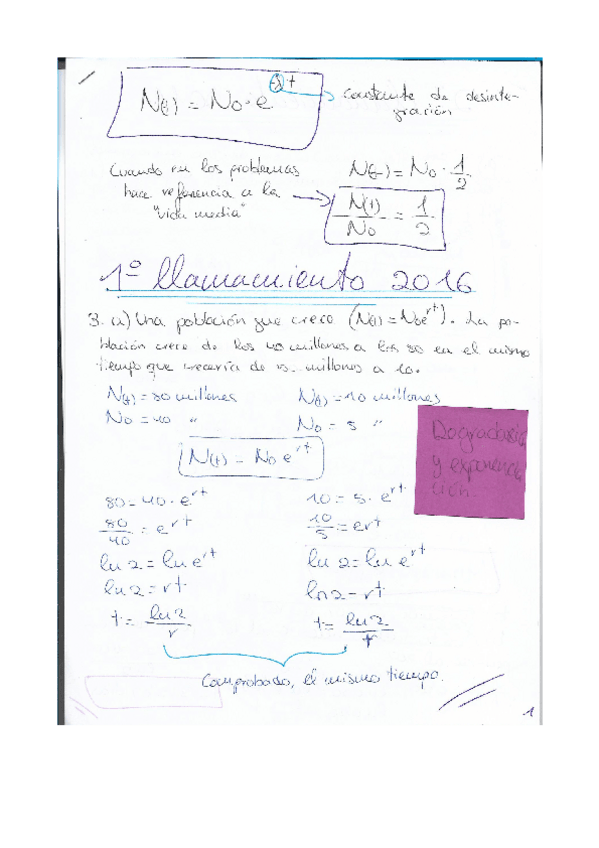 N(t) = N0 · e^-λt
constante de desinte-
gración
Cuando en los problemas
hace referencia a la
"vida media"
N(t) = N0 · 1/2
N(t)/N0 = 1/2
1º llamamiento 2016
3. a) Una población que crece (N(t) = N0e^rt). La po-
blación crece de los 40 millones a los 80 en el mismo
tiempo que crecería de 5 millones a 10.
N(t) = 80 millones
N0 = 40 "
N(t) = 10 millones
N0 = 5 "
N(t) = N0 e^rt
80 = 40 · e^rt
80/40 = e^rt
ln 2 = ln e^rt
ln 2 = rt
t = ln 2/r
10 = 5 · e^rt
10/5 = e^rt
ln 2 = ln e^rt
ln 2 = rt
t = ln 2/r
y exponen
ción.
Comprobado, el mismo tiempo.
1